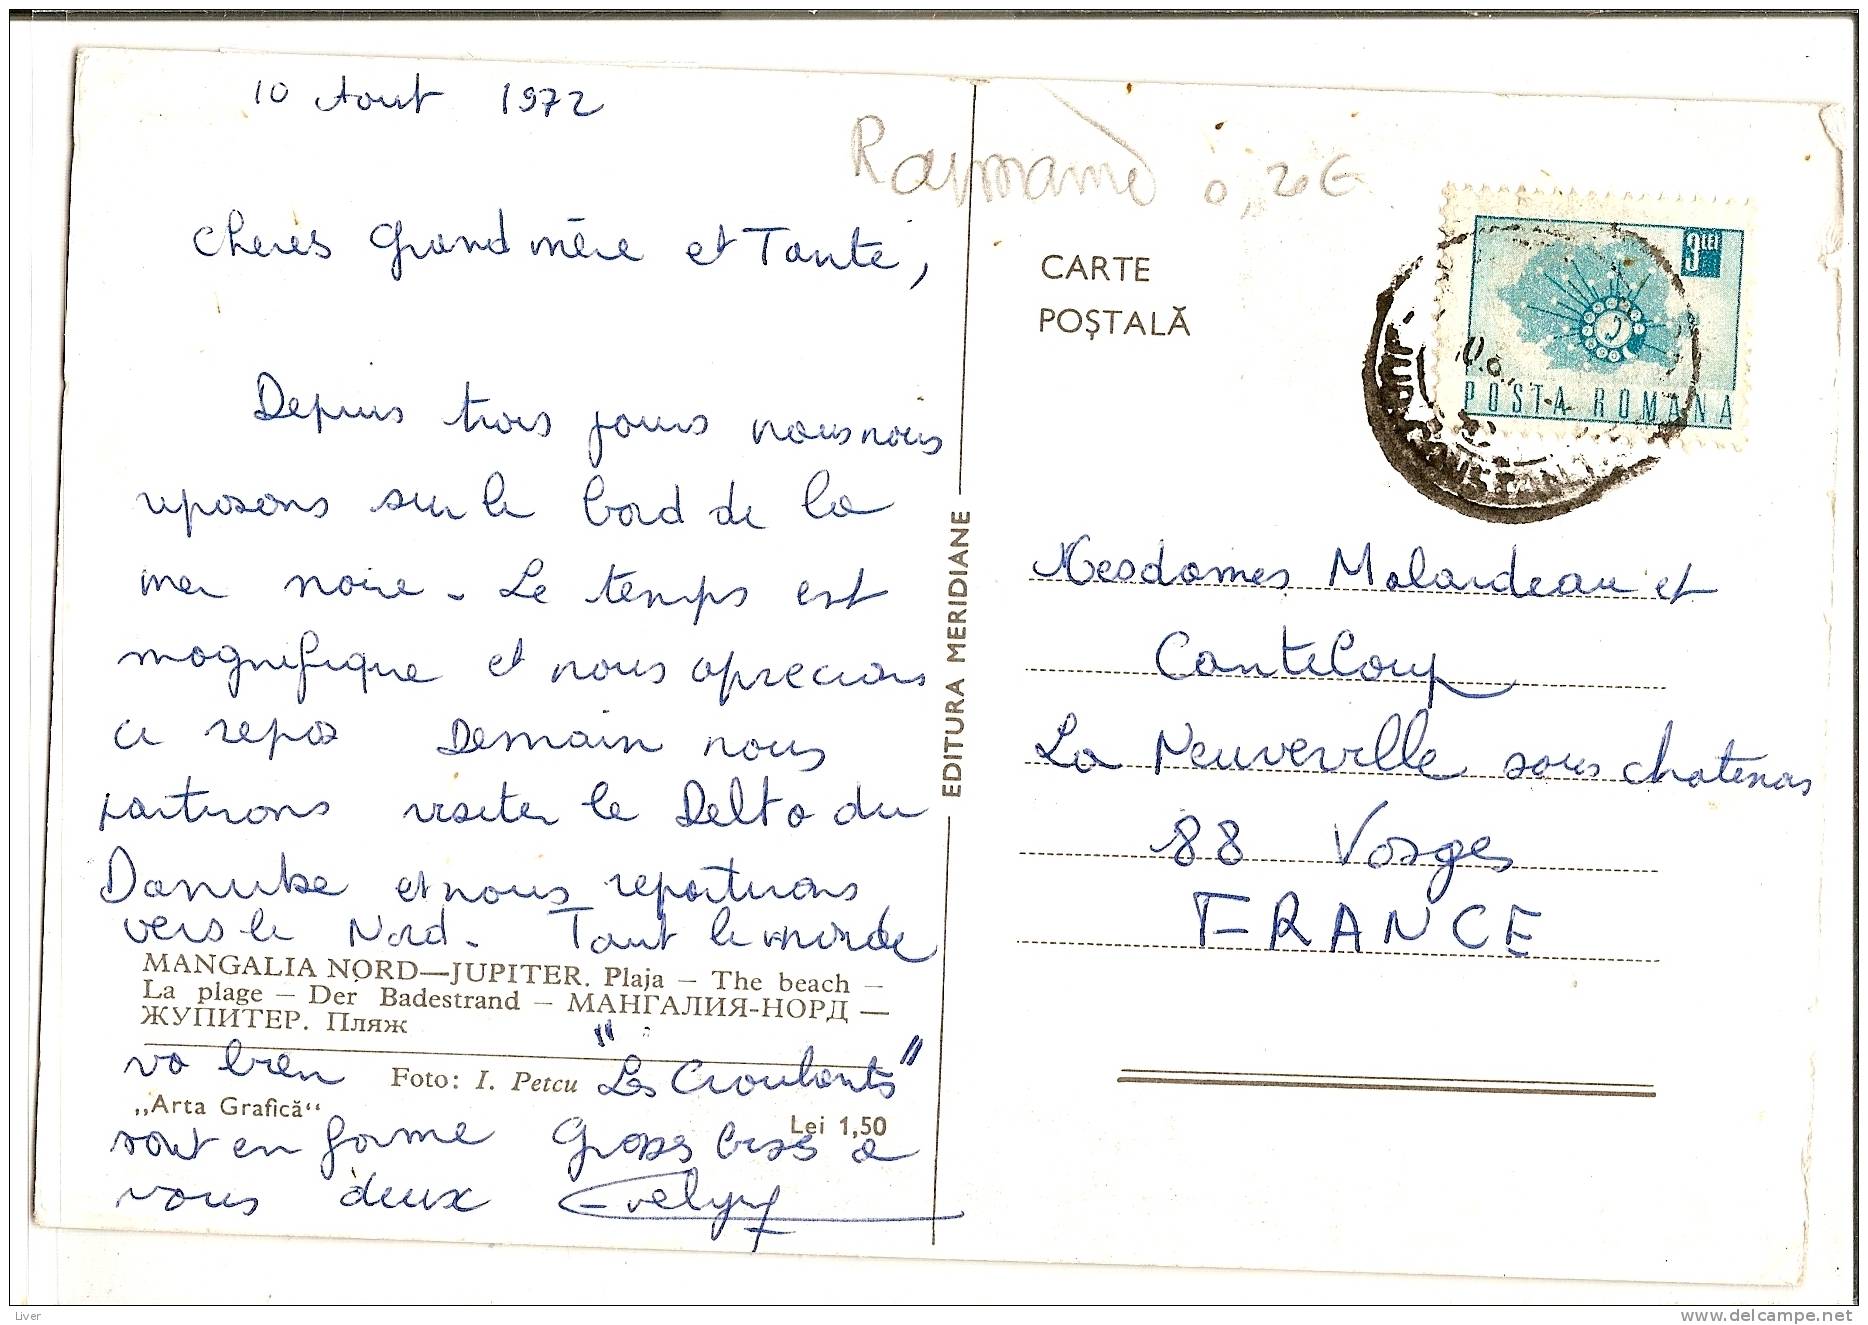 10 Aout 1972
Cheres Grand mère et Tante,
Depuis trois jours nous nous
reposons sur le bord de la
mer noire - Le temps est
magnifique et nous aprecions
ce repos Demain nous
partirons visiter le Delta du
Danube et nous repartirons
vers le Nord. Tout le monde
MANGALIA NORD—JUPITER. Plaja — The beach —
La plage — Der Badestrand — МАНГАЛИЯ-НОРД —
ЖУПИТЕР. Пляж
va bien
Foto: I. Petcu
"Les Croulants"
„Arta Grafică“
Lei 1,50
sont en forme Grosses bises a
vous deux Evelyne
EDITURA MERIDIANE
0,20 €
CARTE
POȘTALĂ
3 LEI
POSTA ROMANA
Mesdames Malardeau et
Canteloup
La Neuveville sous chatenois
88 Vosges
FRANCE
Liver
www.delcampe.net